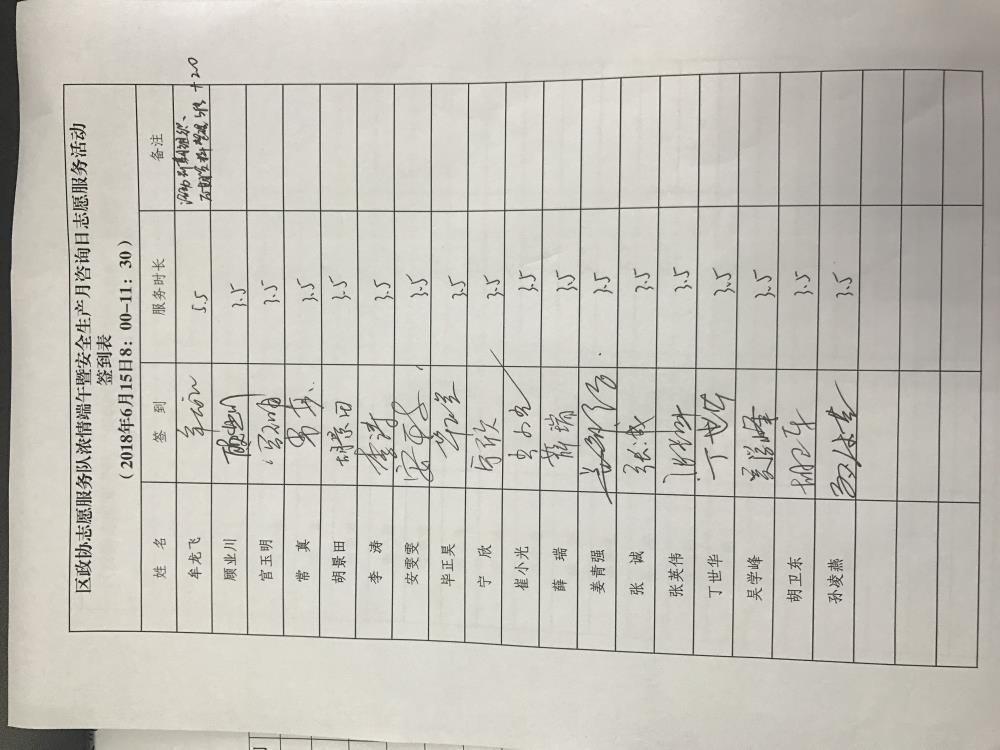 区政协志愿服务队浓情端午暨安全生产月咨询日志愿服务活动
签到表
（2018年6月15日8：00-11：30）
姓 名 签 到 服务时长 备注
牟龙飞 5.5 +20
顾业川 顾业川 3.5
宫玉明 宫玉明 3.5
常 真 常真 3.5
胡景田 胡景田 3.5
李 涛 李涛 3.5
安雯雯 安雯雯 3.5
毕正昊 3.5
宁 欣 宁欣 3.5
崔小光 3.5
薛 瑞 薛瑞 3.5
姜青强 3.5
张 诚 张诚 3.5
张英伟 3.5
丁世华 丁世华 3.5
吴学峰 吴学峰 3.5
胡卫东 胡卫东 3.5
孙凌燕 3.5